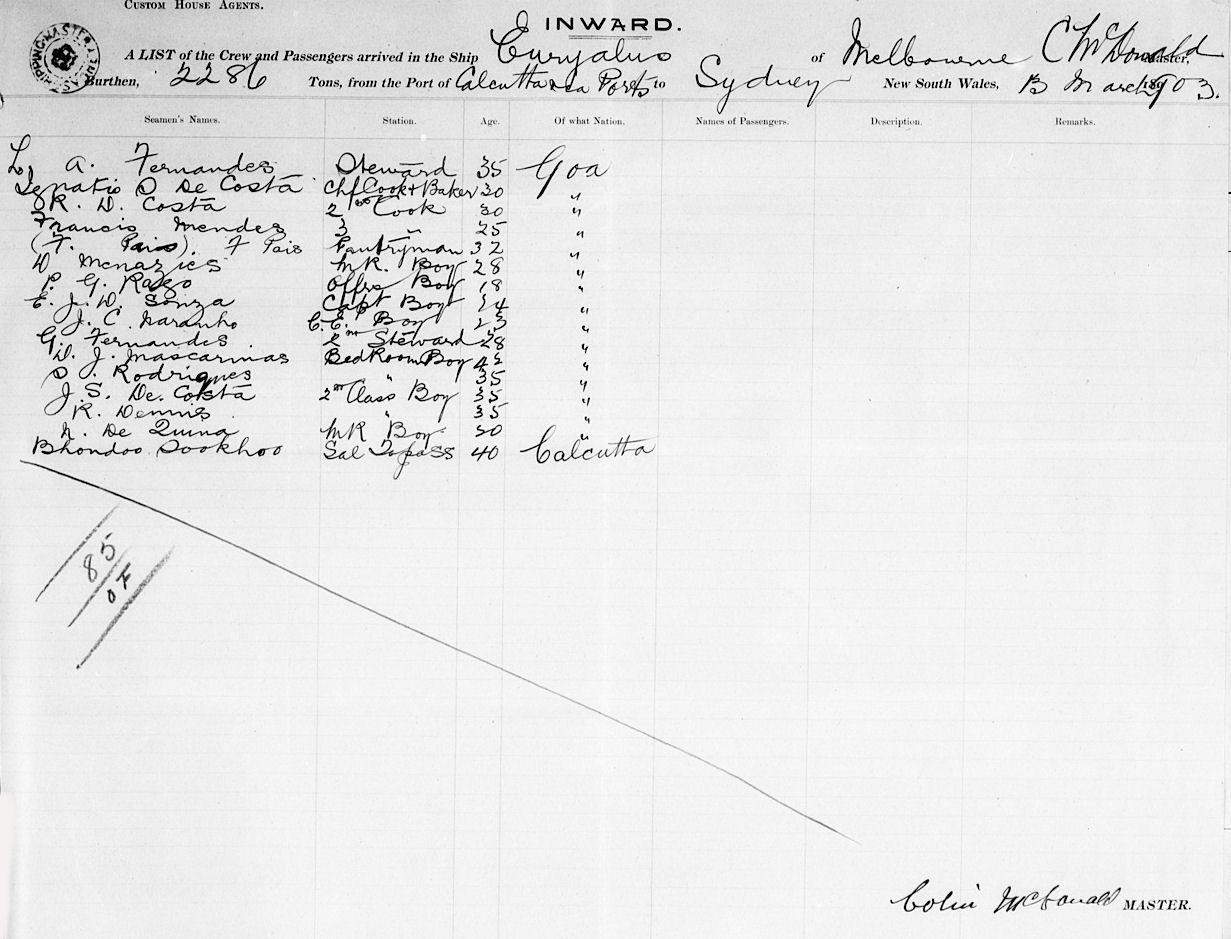 CUSTOM HOUSE AGENTS.
INWARD.
SHIPPING MASTER
A LIST of the Crew and Passengers arrived in the Ship Euryalus of Melbourne C McDonald Master,
Burthen, 2286 Tons, from the Port of Calcutta via Ports to Sydney New South Wales, 13 March 1903.
Seamen's Names. Station. Age. Of what Nation. Names of Passengers. Description. Remarks.
L. A. Fernandes Steward 35 Goa
Ignatio D De Costa Chf Cook & Baker 30 "
R. D. Costa 2nd Cook 30 "
Francis Mendes 3 " 25 "
(F. Pais). F Pais Pantryman 32 "
D Menazies MR. Boy 28 "
P. G. Rago Offrs Boy 18 "
E. J. D. Sonza Capt Boy 24 "
J. C. Naranho C.E. Boy 23 "
G. Fernandes. 2nd Steward 28 "
D. J. Mascarinas BedRoom Boy 42 "
S J. Rodriques " 35 "
J. S. De. Costa 2nd Class Boy 35 "
R. Dennis " 35 "
N. De Quina MR Boy 20 "
Bhondoo Sookhoo Sal Topass 40 Calcutta
85
OF
Colin McDonald MASTER.